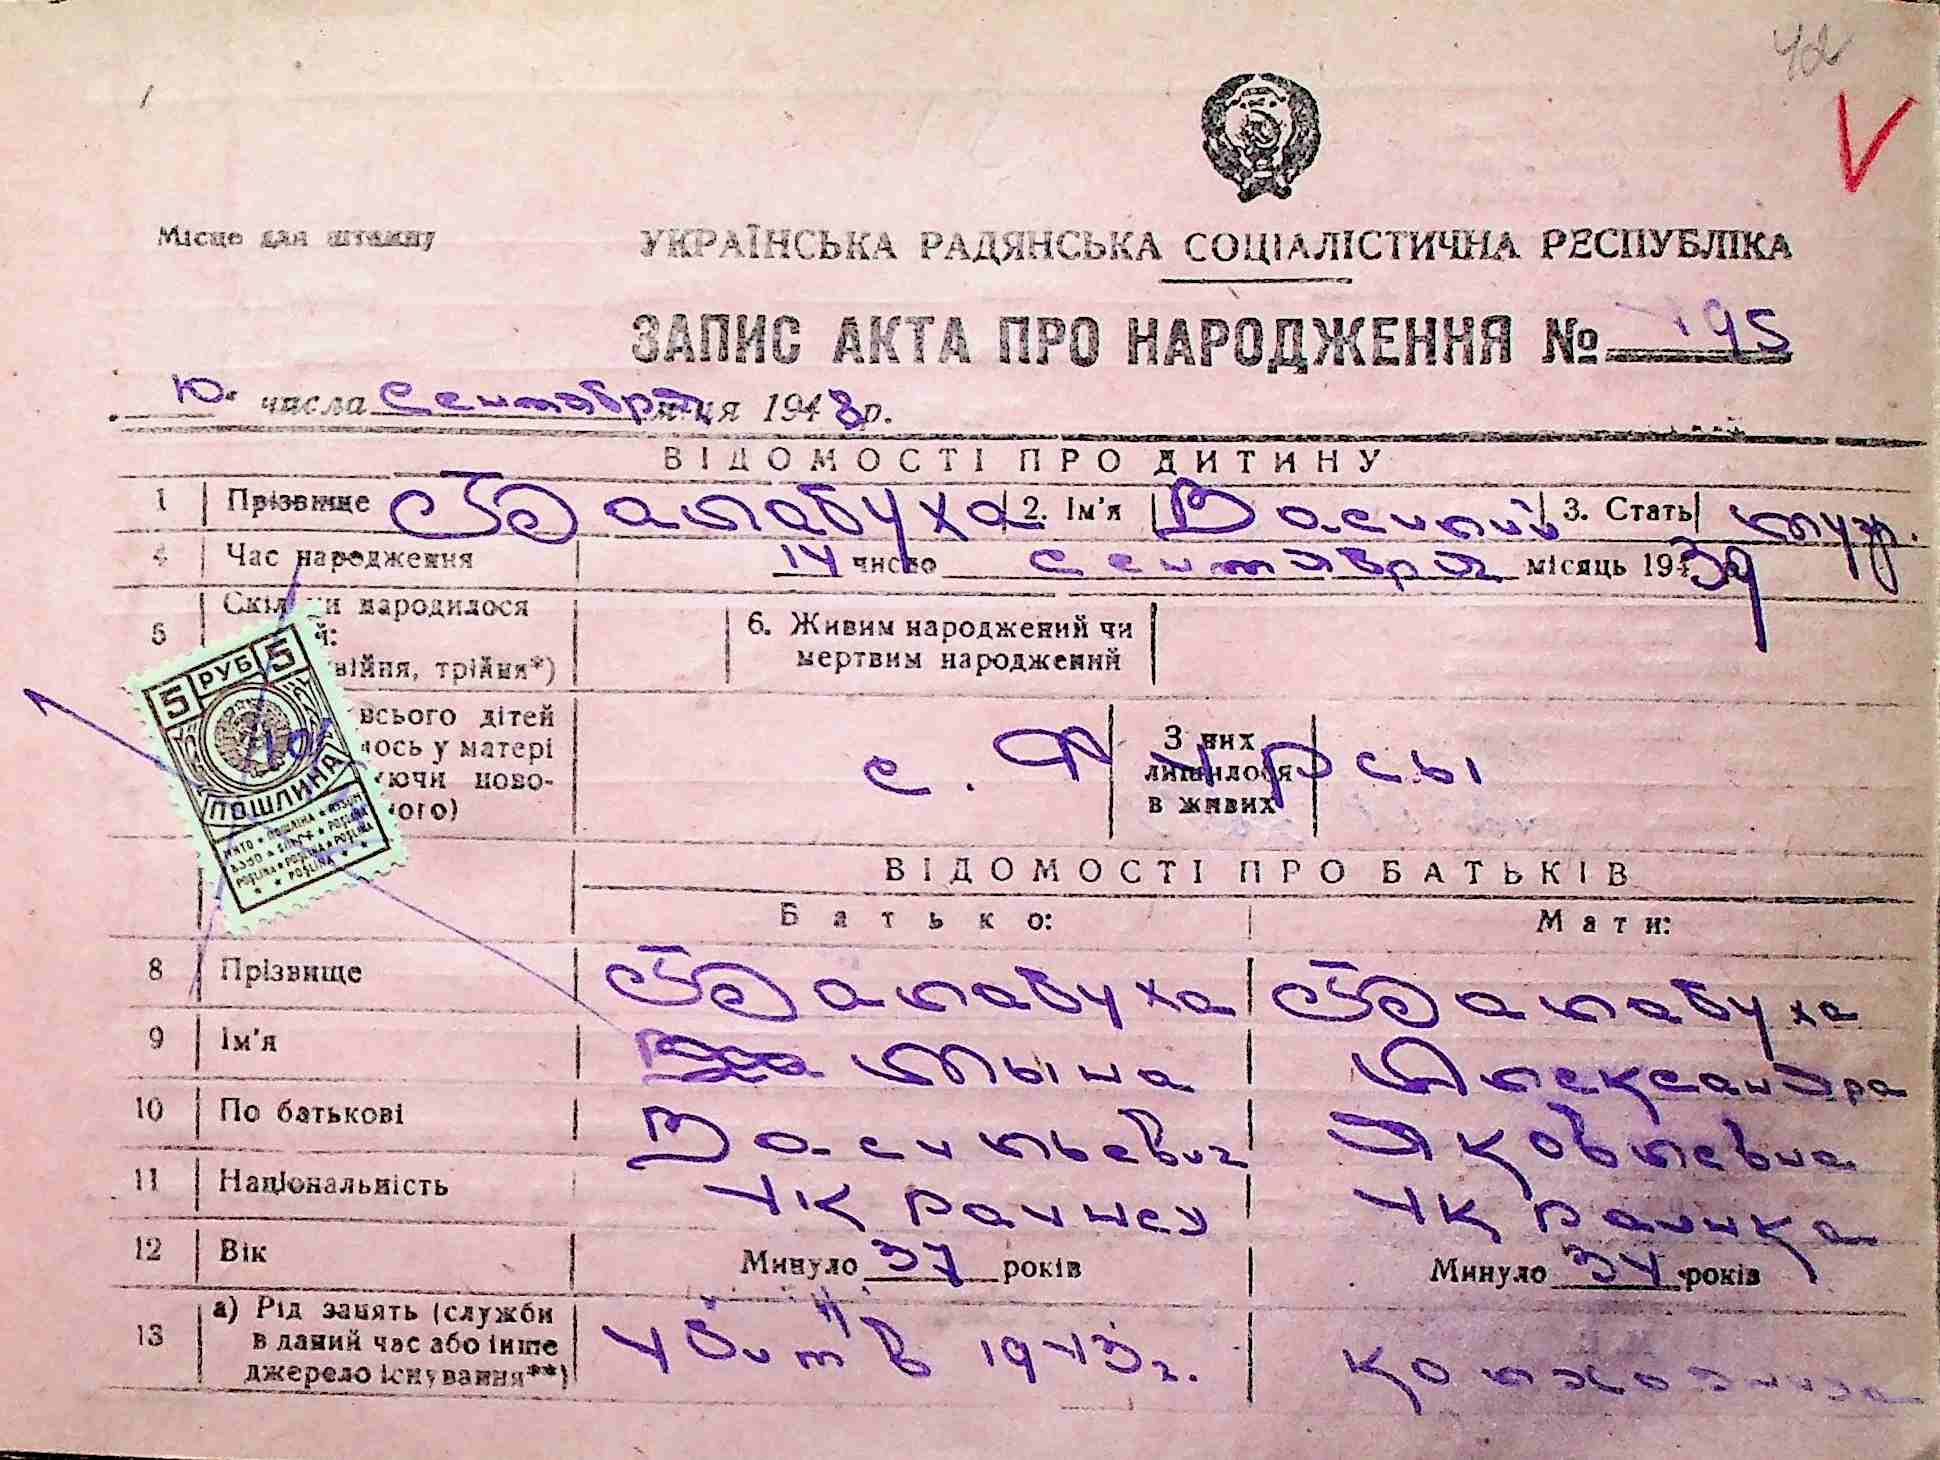 42
V
Місце для штампу
УКРАЇНСЬКА РАДЯНСЬКА СОЦІАЛІСТИЧНА РЕСПУБЛІКА
ЗАПИС АКТА ПРО НАРОДЖЕННЯ № 195
10 числа сентября м-ця 1948 р.
ВІДОМОСТІ ПРО ДИТИНУ
1 Прізвище Балабуха 2. Ім'я Василий 3. Стать муж.
4 Час народження 14 число сентября місяць 1939
5 народилося
двійня, трійня*)
6. Живим народжений чи
мертвим народжений
всього дітей
у матері
ново-
З них
лишилося
в живих
с. Фурсы
5 РУБ 5
ПОШЛИНА
ВІДОМОСТІ ПРО БАТЬКІВ
Батько: Мати:
8 Прізвище Балабуха Балабуха
9 Ім'я Александра
10 По батькові Васильевич Яковлевна
11 Національність украинец украинка
12 Вік Минуло 37 років Минуло 34 років
13 а) Рід занять (служби
в даний час або інше
джерело існування**)
убит в 1943 г. колхозница